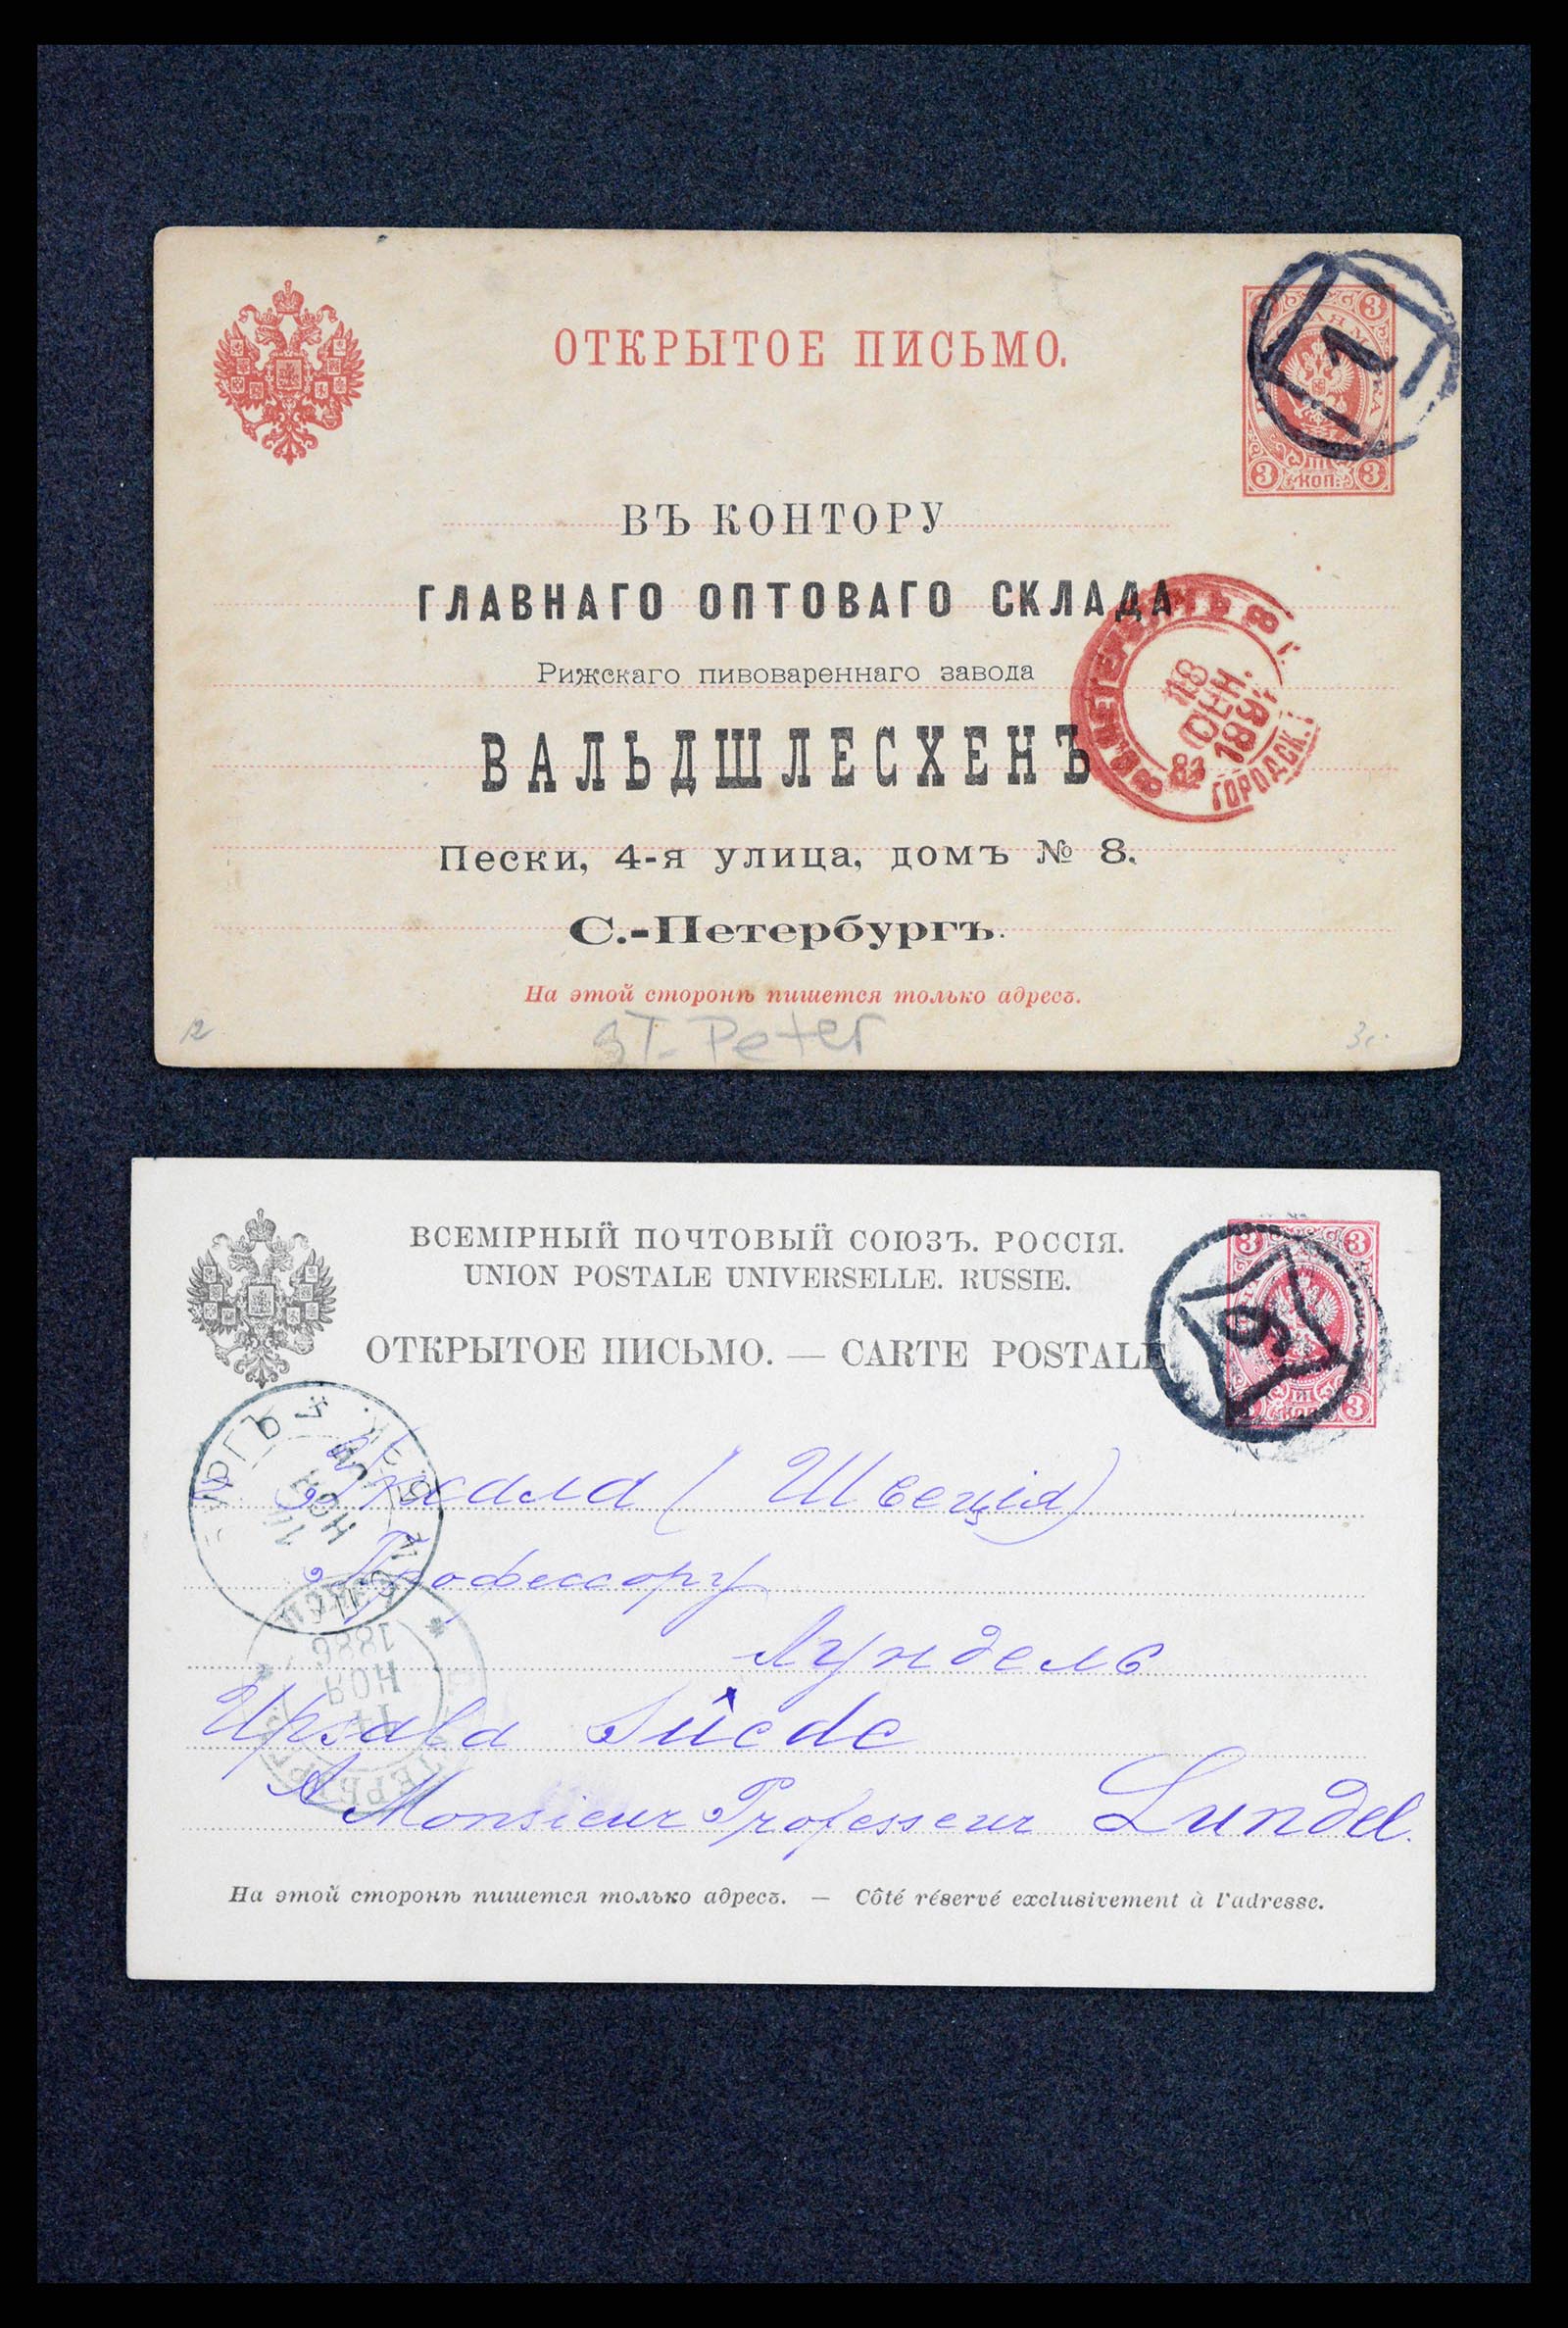 ОТКРЫТОЕ ПИСЬМО.
3 3
1
3 КОП. 3
ВЪ КОНТОРУ
ГЛАВНАГО ОПТОВАГО СКЛАДА
Рижскаго пивовареннаго завода
ВАЛЬДШЛЕСХЕНЪ
18
СЕН.
189
ГОРОДСК.
Пески, 4-я улица, домъ № 8.
С.-Петербургъ.
На этой сторонѣ пишется только адресъ.
12
ST. Peter
ВСЕМІРНЫЙ ПОЧТОВЫЙ СОЮЗЪ. РОССІЯ.
UNION POSTALE UNIVERSELLE. RUSSIE.
3 3
6
3
ОТКРЫТОЕ ПИСЬМО. — CARTE POSTALE
НОЯ
Упсала (Швеція)
Профессору
Лундель
11
НОЯ
1886
Upsala Suède
A Monsieur Professeur Lundel.
На этой сторонѣ пишется только адресъ. — Côté réservé exclusivement à l'adresse.